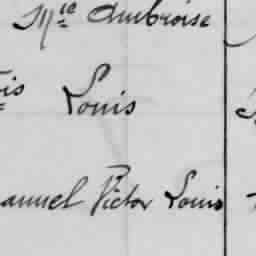 Mie Ambroise
is Louis
anuel Victor Louis